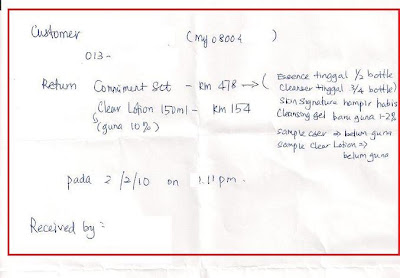 Customer (My 08004 )
013-
Return Comniment Set - RM 478 → ( Essence tinggal 1/2 bottle
Cleanser tinggal 3/4 bottle)
Clear Lotion 150ml - RM 154
(guna 10%)
Skin Signature hampir habis
Cleansing Gel baru guna 1-2%
Sample ⇒ belum guna
Sample Clear Lotion ⇒
belum guna
pada 2/2/10 on 1.11 pm.
Received by :